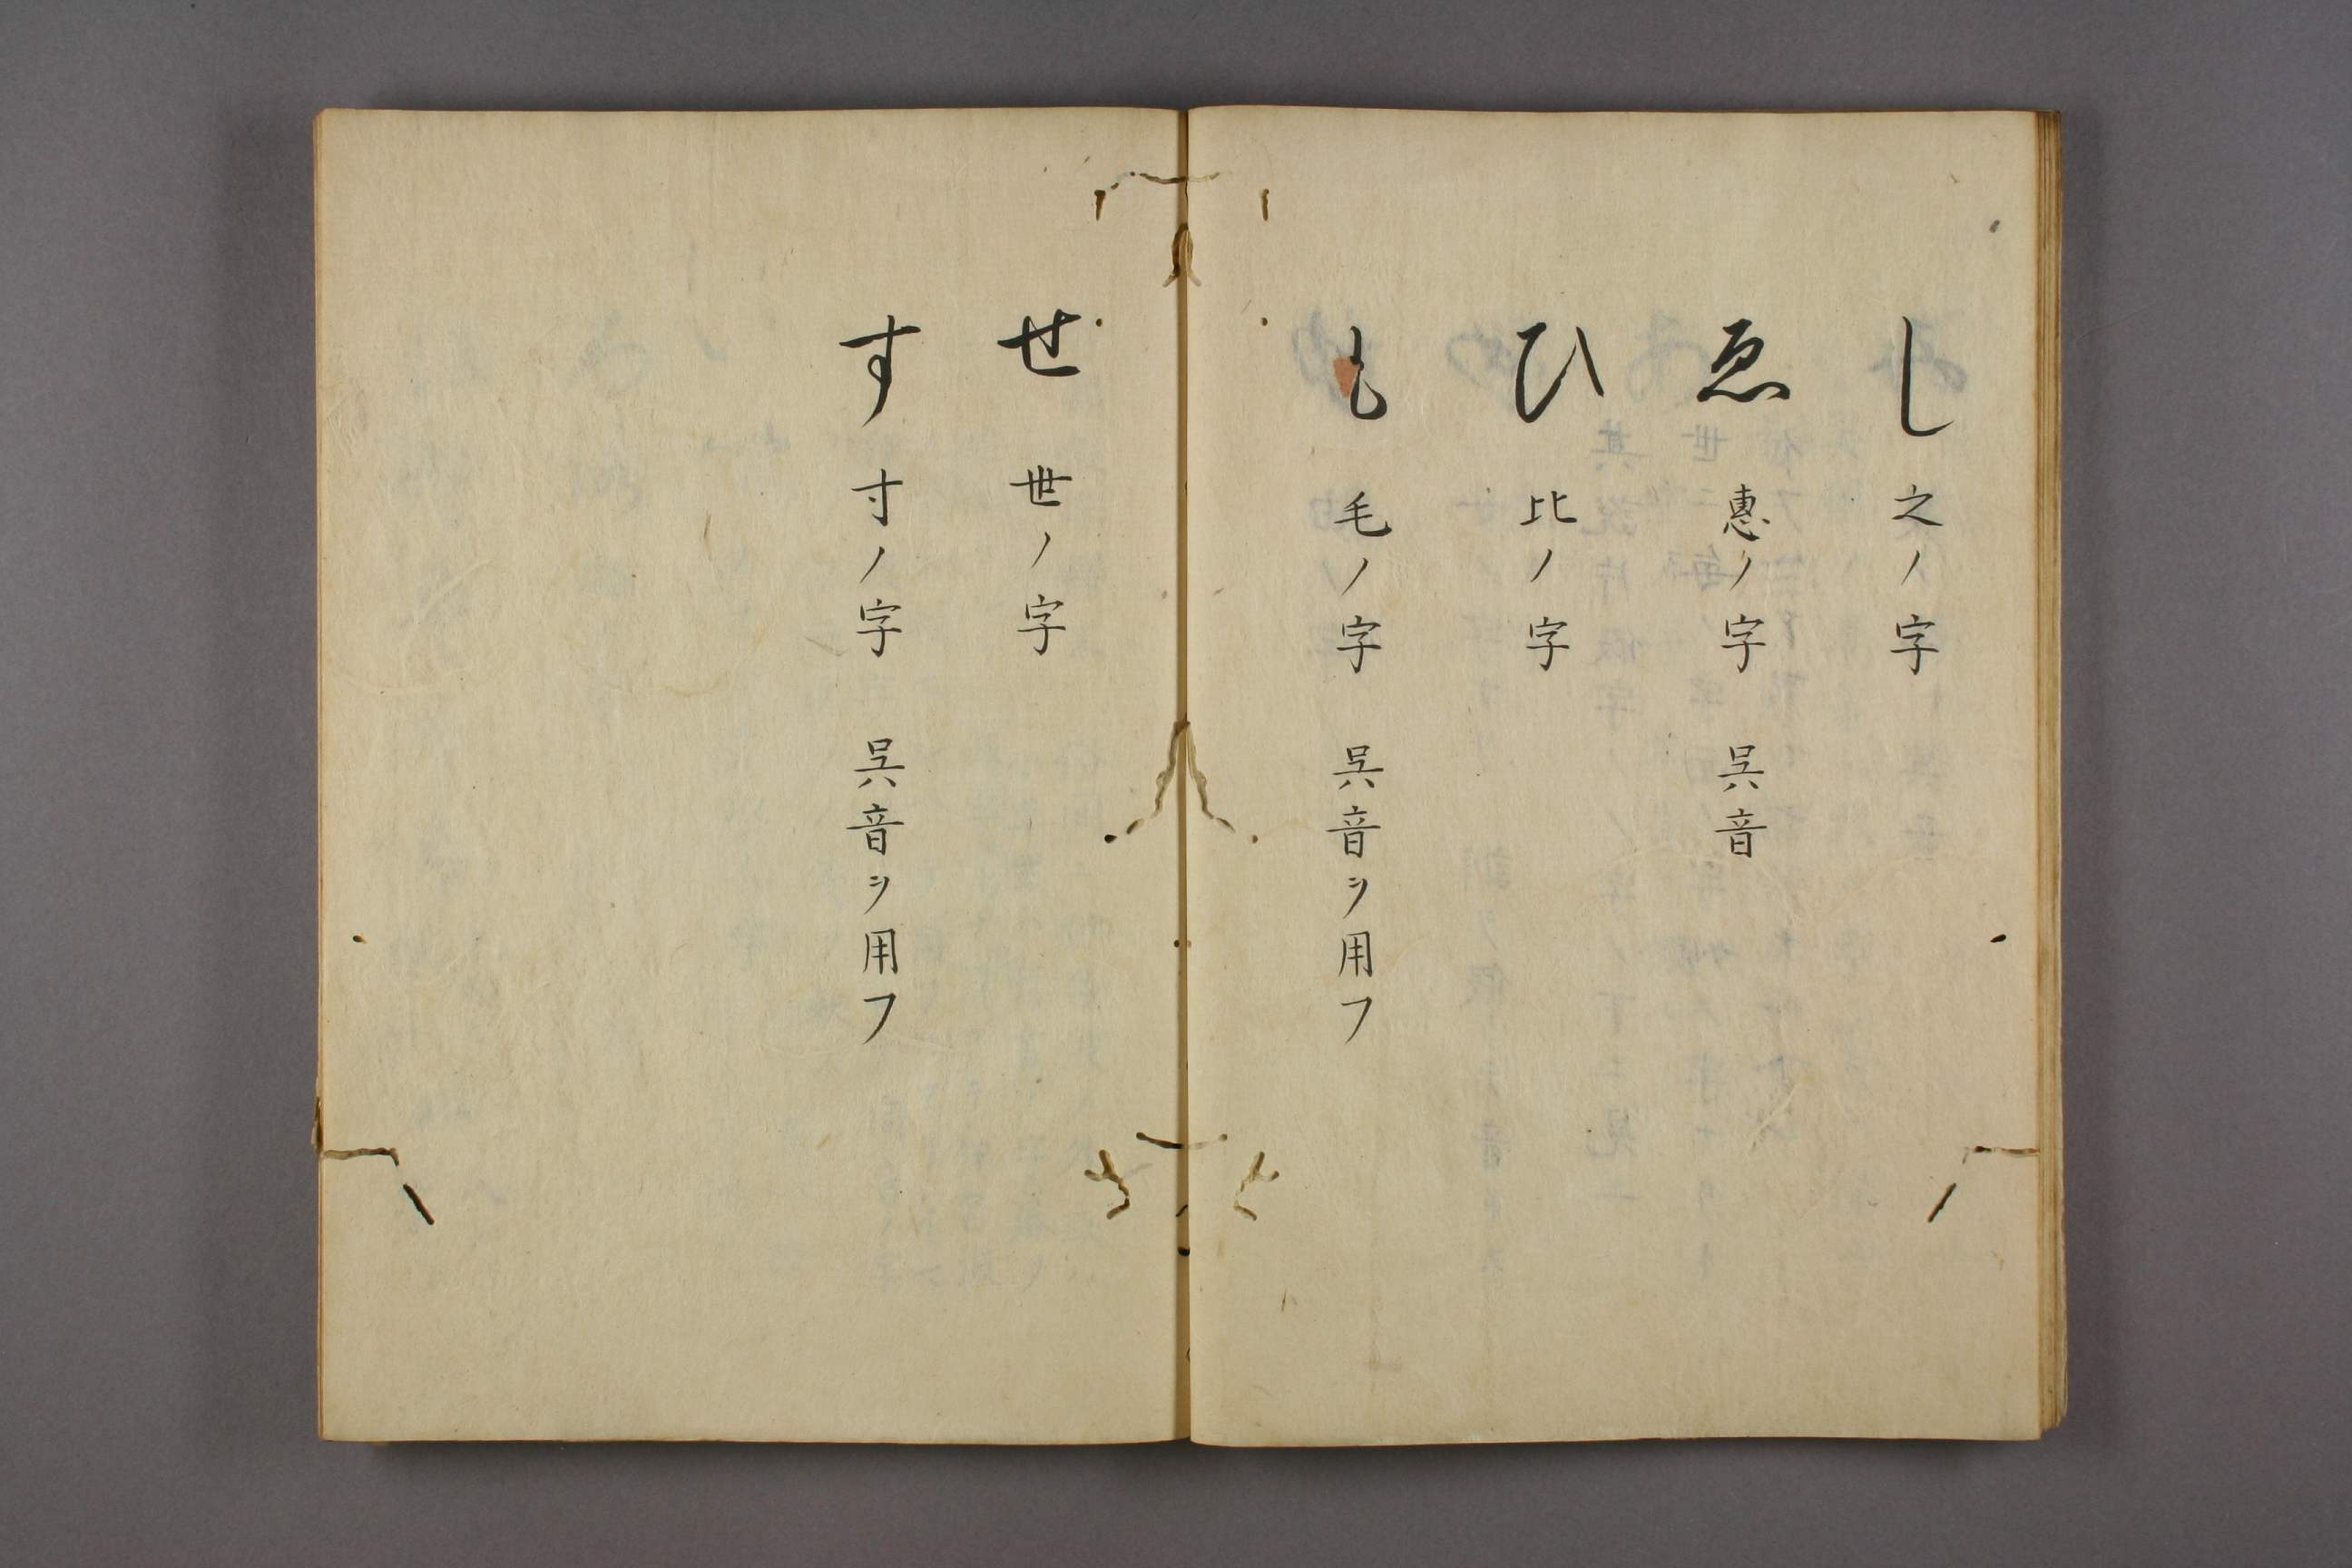 し 之ノ字
ゑ 惠ノ字 呉音
ひ 比ノ字
も 毛ノ字 呉音ヲ用フ
せ 世ノ字
す 寸ノ字 呉音ヲ用フ